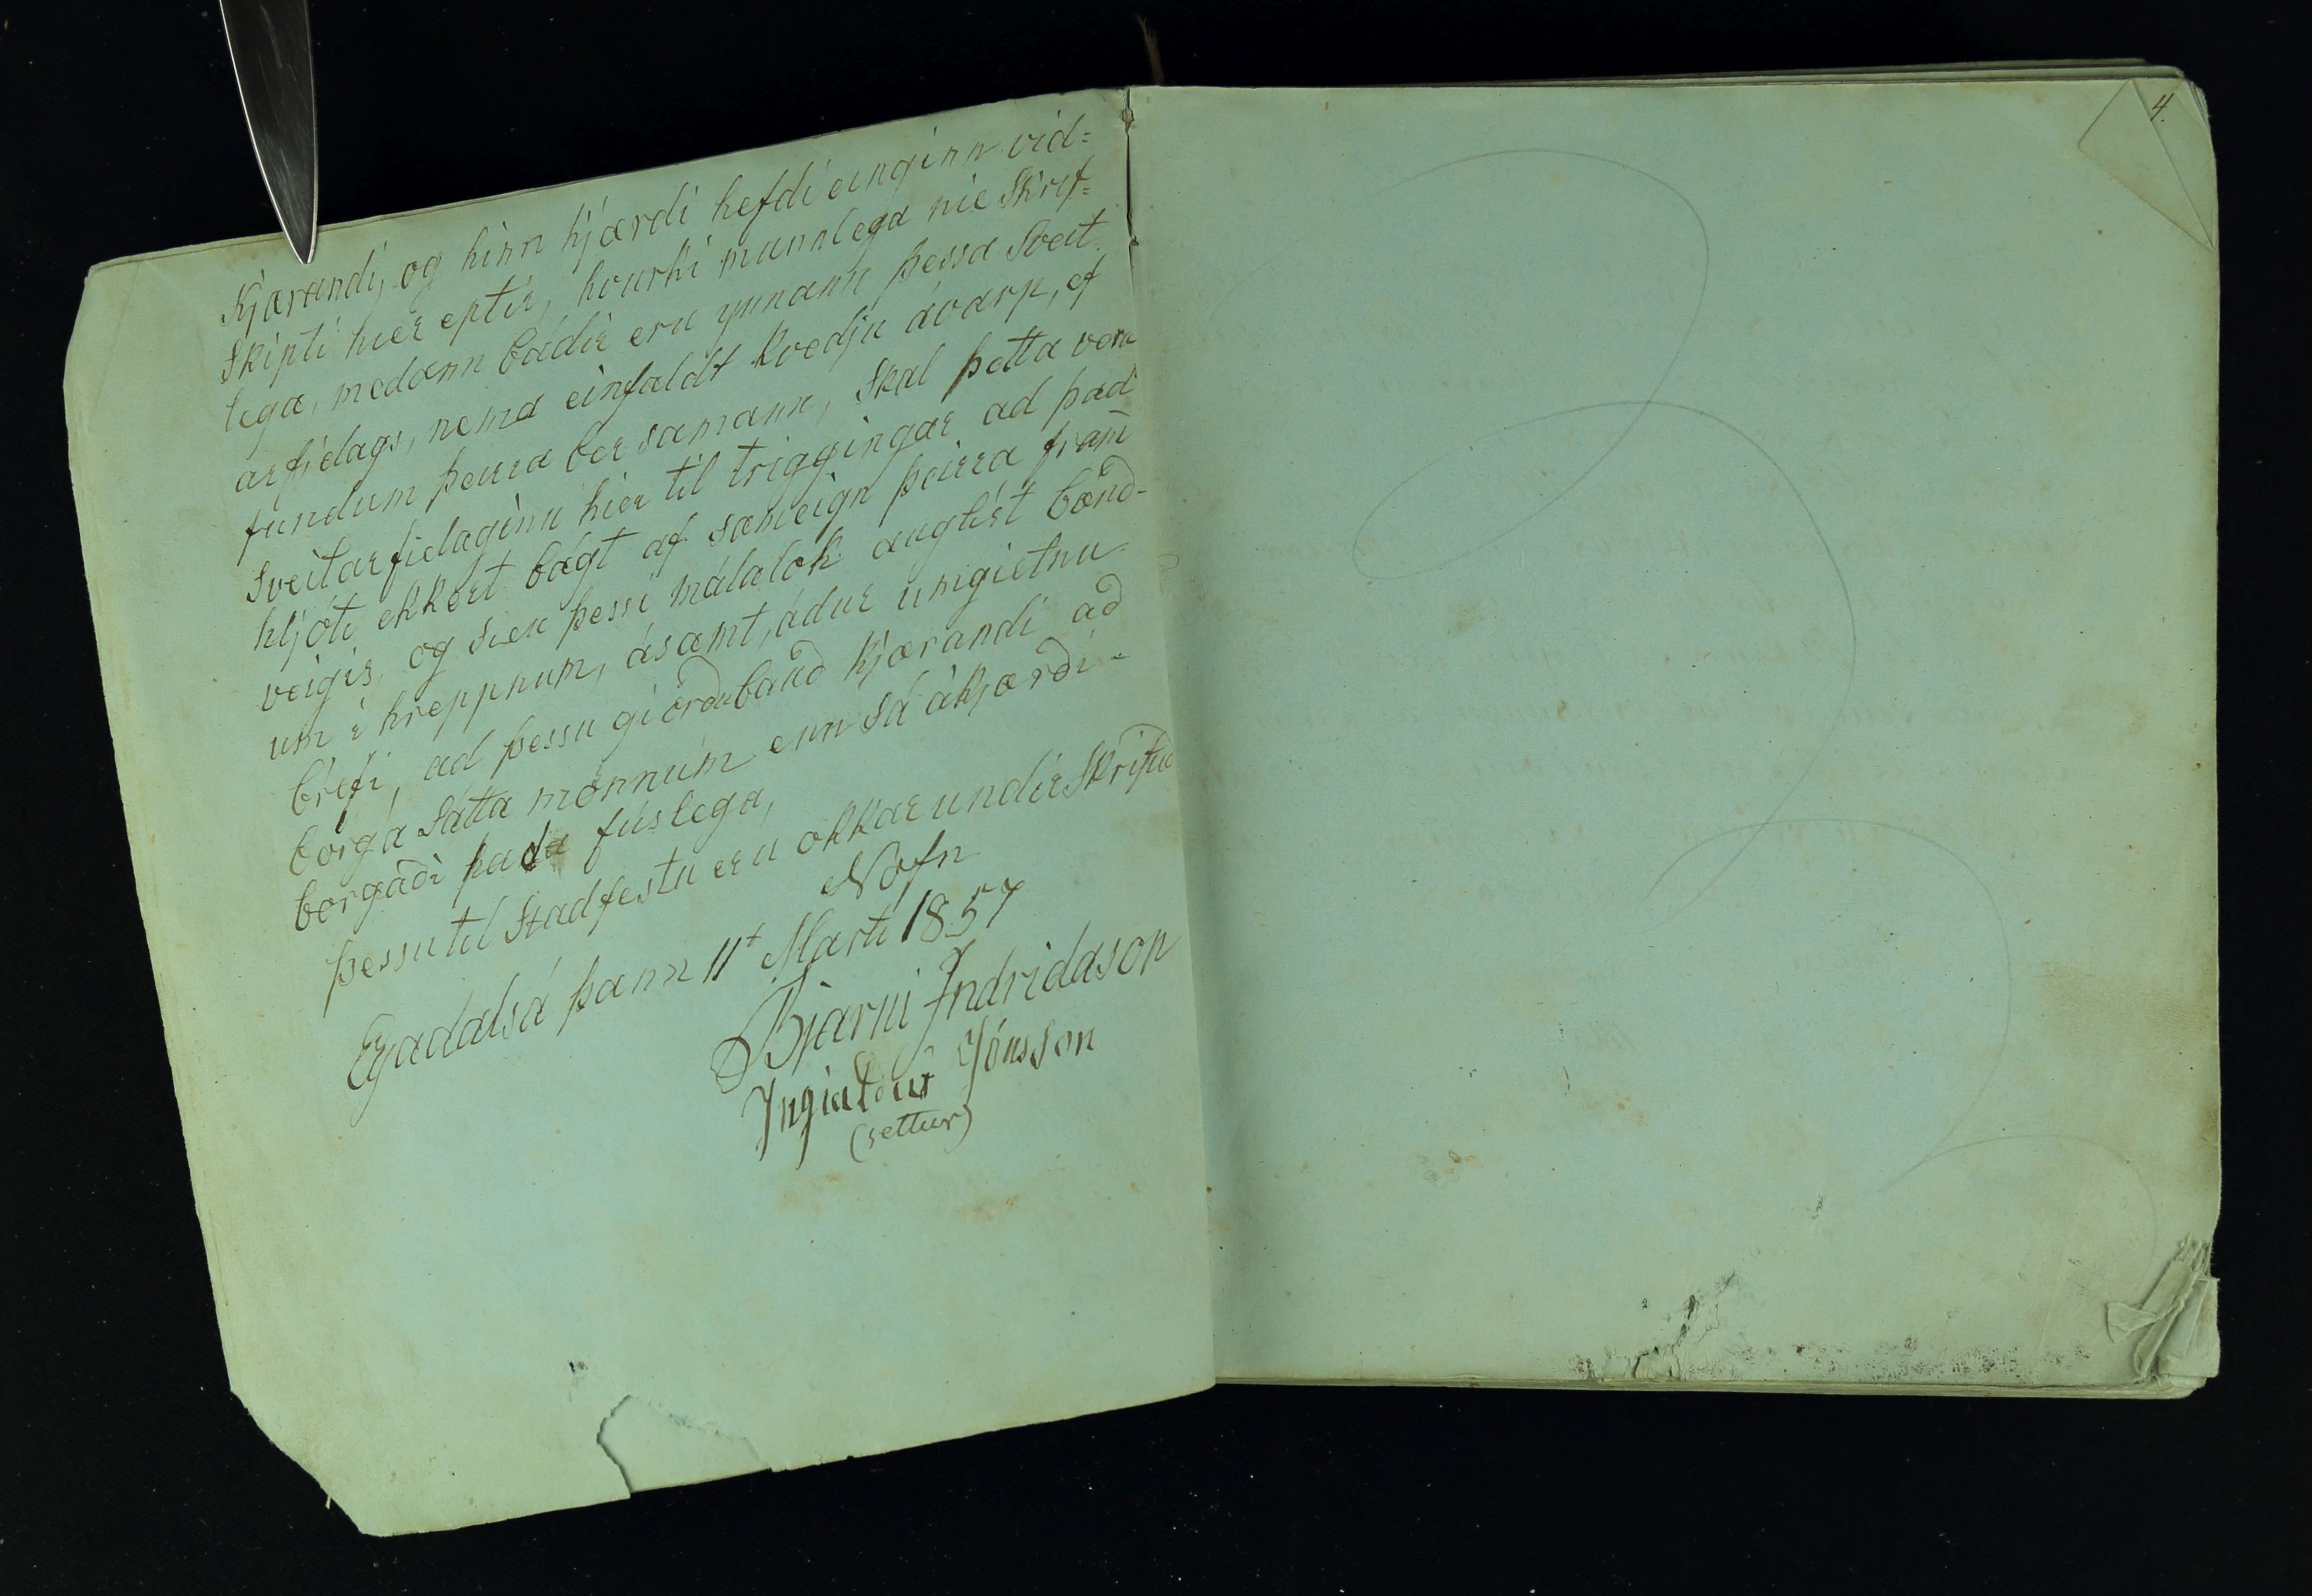 Kjærandi, og hinn kjærdi hefdi eunginn vid=
Skipti hier eptir, hvurki mannlega nie Skrif=
lega, medann bádir eru ynnann þessa Sveit
arfielags, nema einfaldt kvedju ávarp, ef
fundum þeirra ber samann, Skal þetta vera
Sveitarfielaginu hier til triggingar ad þad
hljóti ekkert bágt af sameign þeirra fram̄
veigis, og sieu þessi málalok auglist bænd-
um i hreppnum, ásamt, ádur umgietnu
brefi, ad þessu giördu baud Kjærandi ad
borga Sátta mönnum enn Sá ákjærdi-
borgadi þada fúslega,
þessu til Stadfestu eru okkar undir Skrifud
Nöfn
Eyadalsá þann 11t Marti 1857
Bjarni Indridason
Ingialdur Jónsson
(settur)
4.